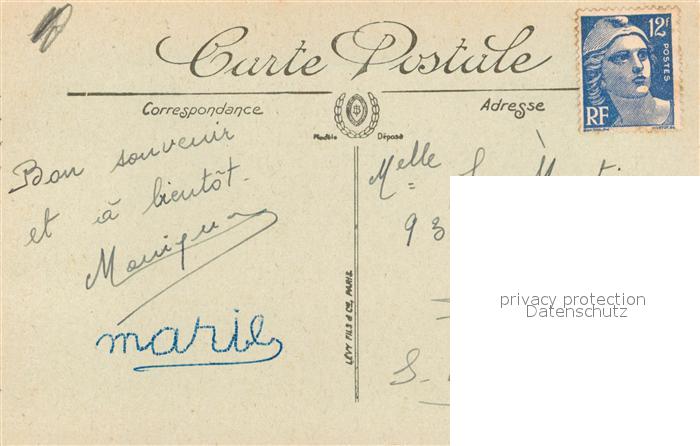 Carte Postale
12F
POSTES
RF
Correspondance
Adresse
Modèle Déposé
Bon souvenir
et à bientôt.
Monique
marie
LÉVY FILS & Cie, PARIS
Melle
93
S.
privacy protection
Datenschutz